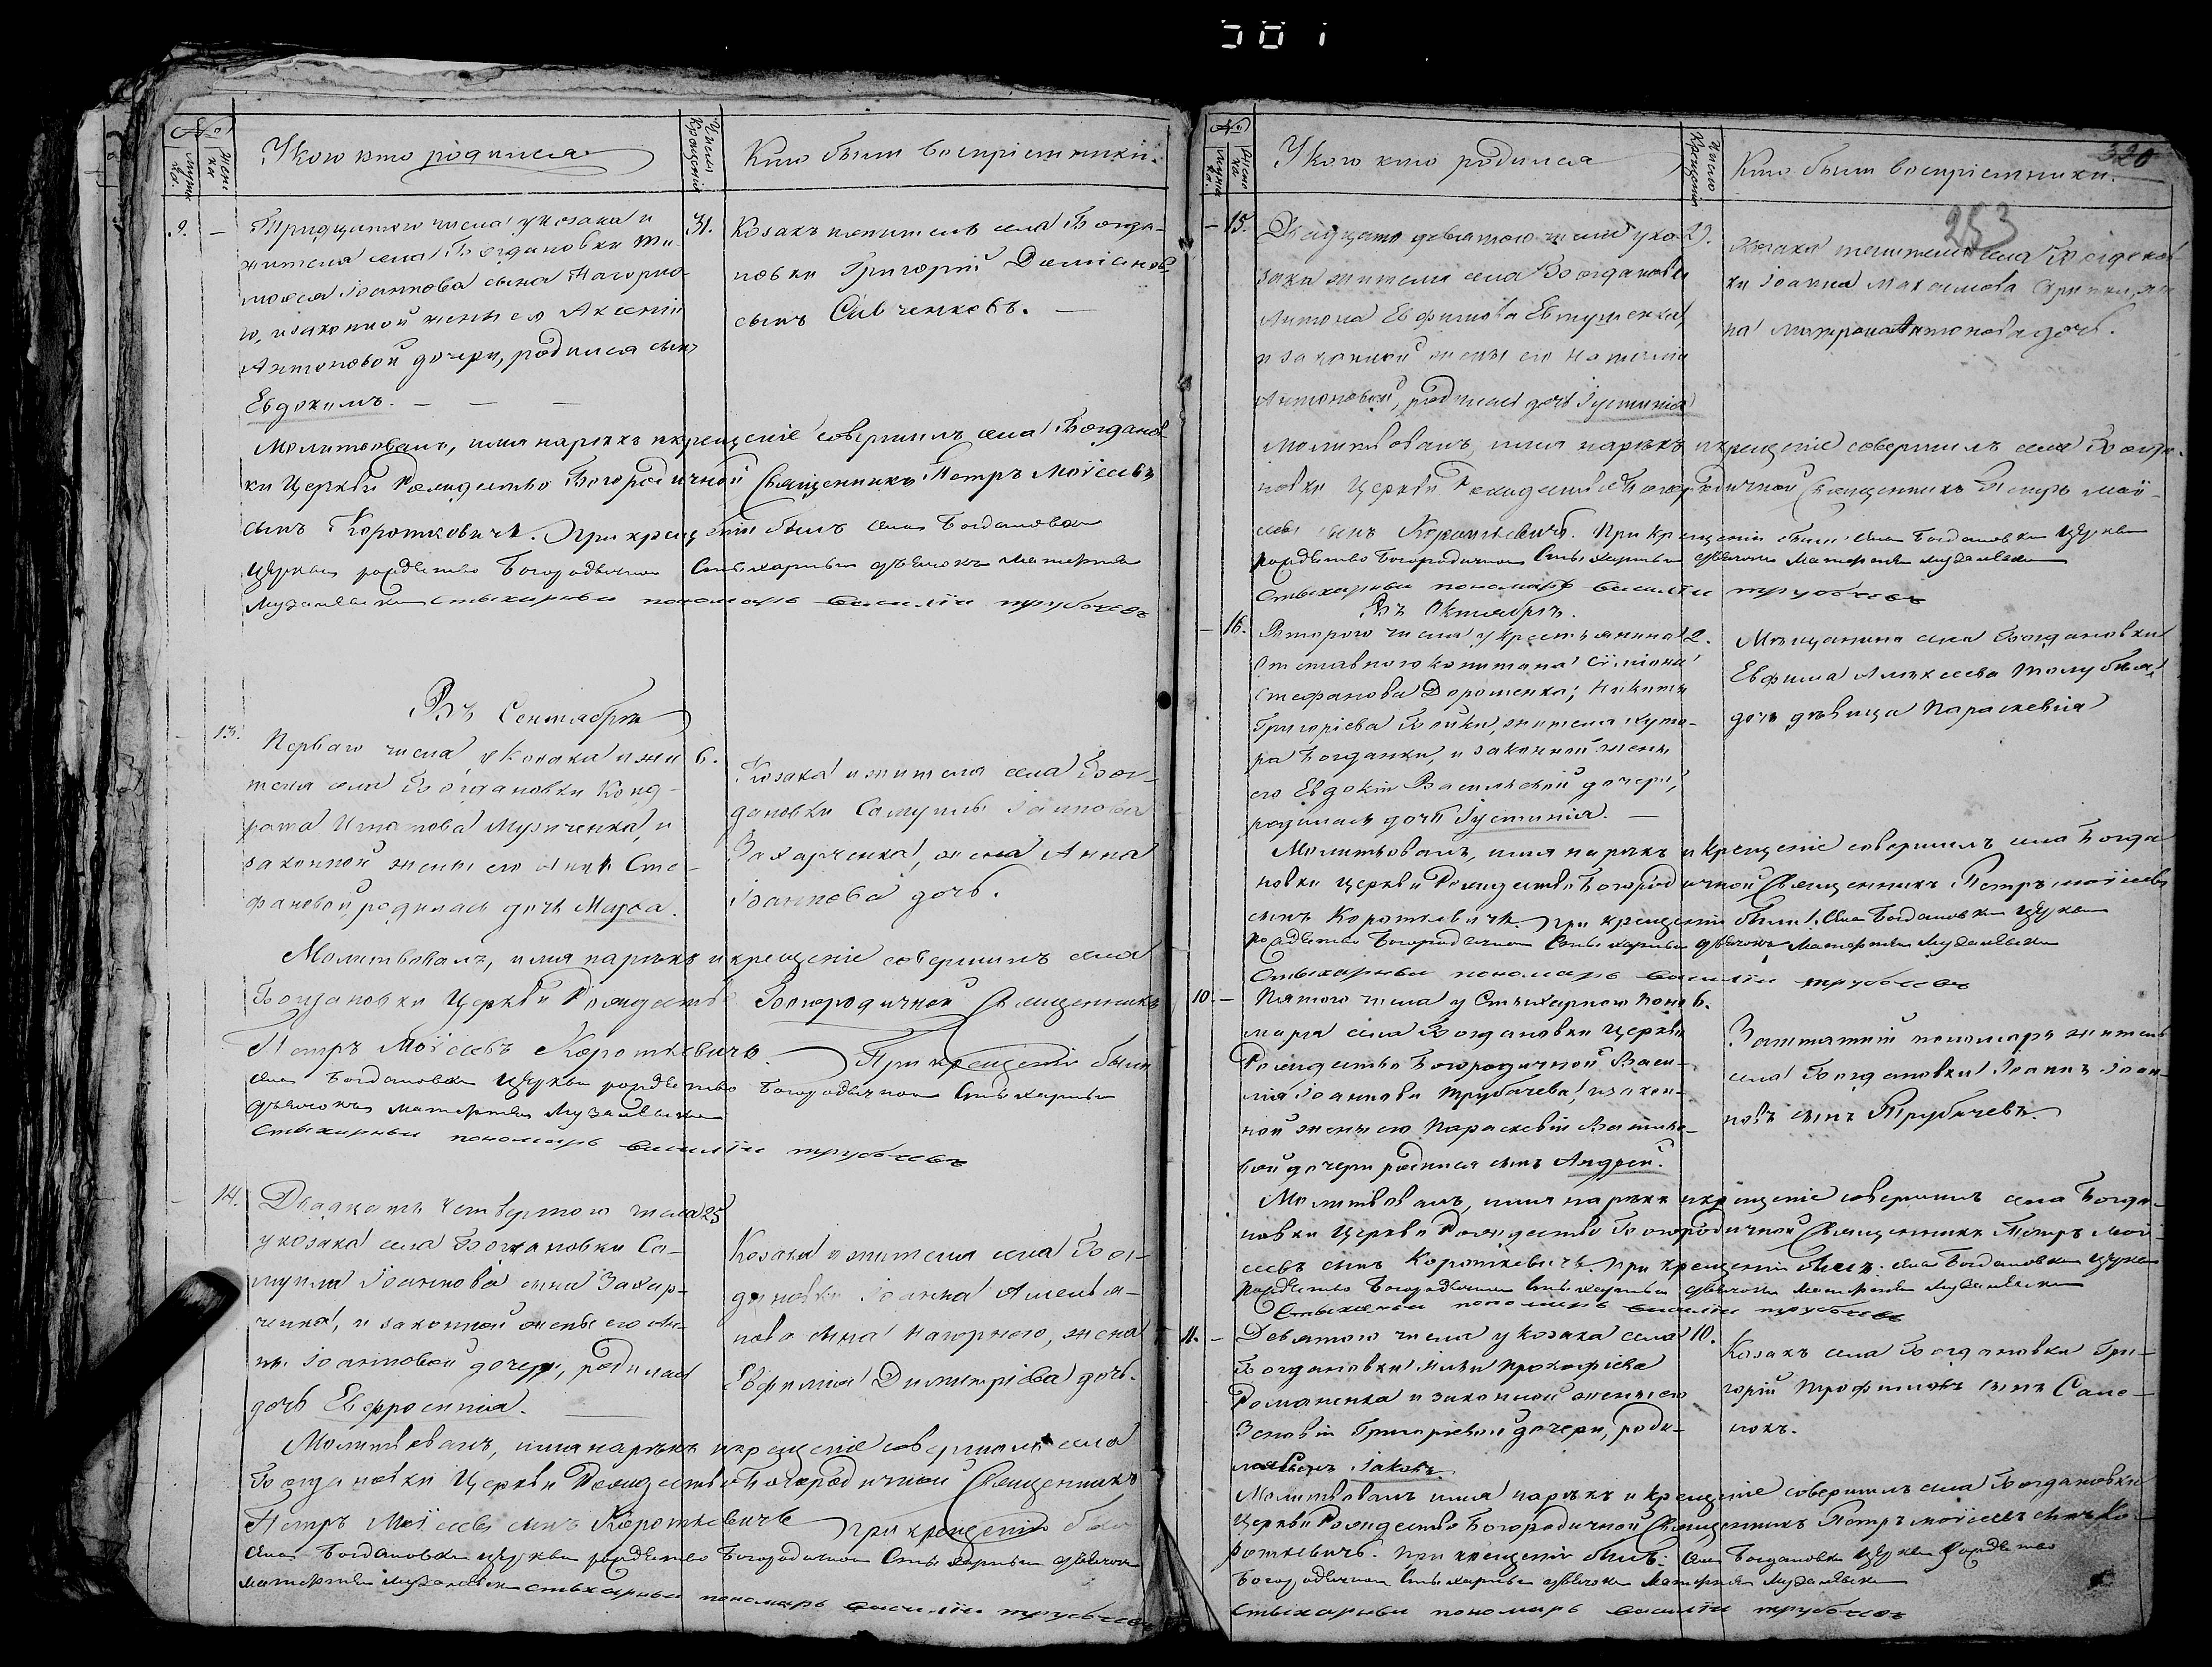 381
№
Мужска.
Женска
У кого кто родился
Число Крещенія
Кто были воспріемники.
9.
—
Тридцатого числа у козака и
31.
жителя села Богдановки Ти-
моѳея Іоаннова сына Нагорно-
го, и законной жены его Аксеніи
Антоновой дочери, родился сынъ
Евдокимъ. — — —
Козакъ и житель села Богда-
новки Григорій Даміановъ
сынъ Савченковъ. —
Молитвовалъ, имя нарѣкъ и крещеніе совершилъ села Богданов
ки Церкви Рождество Богородичной Священникъ Петръ Моѵсеевъ
сынъ Короткевичъ. При крещеніи былъ села Богдановки
Церкви рождество Богородичной Стихарный дьячокъ
стихарный пономарь василіи трубачевъ
Въ Сентябрѣ
13.
Перваго числа, у Козака и жи
6.
теля села Богдановки Конд-
рата Игнатова Музиченка, и
законной жены его Анны Сте-
фановой, родилась дочь Марѳа.
Козака и жителя села Бог-
дановки Самуила Іаннова
Захарченка, жена Анна
Іоаннова дочь.
Молитвовалъ, имя нарѣкъ и крещеніе совершилъ села
Богдановки Церкви Рождество Богородичной Священникъ
Петръ Моѵсеевъ Короткевичъ. При крещеніи были
села Богдановки Церкви рождество Богородичной Стихарный
дьячокъ
стихарный пономарь василіи трубачевъ
14.
Двадцать четвертого числа
25
у козака села Богдановки Са-
муила Іоаннова сына Захар-
ченка, и законной жены его Ан-
ны Іоанновой дочери, родилась
дочь Евфросинія. —
Козака и жителя села Бог-
дановки Іоанна Амелья-
нова сына Нагорного, жена
Евфимія Димитріева дочь.
Молитвовалъ, имя нарѣкъ и крещеніе совершилъ села
Богдановки Церкви Рождество Богородичной Священникъ
Петръ Моѵсеевъ сынъ Короткевичъ при крещеніи были
села Богдановки церкви рождество Богородичной Стихарный дьячокъ
стихарный пономарь василіи трубачевъ
№
Мужска.
Женска
У кого кто родился
Число Крещенія
Кто были воспріемники.
320
253
—
15.
Двадцать девятого числа у ко
29.
зака жителя села Богдановки
Антона Евфимова Евтушенка,
и законной жены его Наталіи
Антоновой, родилась дочь Іустинія
Козака жителя села Богданов
ки Іоанна Максимова
на Матрона Антонова дочь.
Молитвовалъ, имя нарѣкъ и крещеніе совершилъ села Богда-
новки Церкви Рождество Богородичной Священникъ Петръ Моѵ-
сеевъ сынъ Короткевичъ. При крещеніи были села Богдановки Церкви
рождество Богородичной Стихарный дьячокъ
Стихарный пономарь василіи трубачевъ
Въ Октябрѣ.
—
16.
Второго числа у крестьянина
2.
Отставного капитана Сѵмеона
Стефанова Дорошенка; Никиты
Григоріева Бойка, жителя хуто-
ра Богданки, и законной жены
его Евдокіи Васильевой дочери,
родилась дочь Іустинія. —
Мѣщанина села Богдановки
Евфима Алексеева
дочь дѣвица Параскевія
Молитвовалъ, имя нарѣкъ и крещеніе совершилъ села Богда
новки церкви Рождество Богородичной Священникъ Петръ Моѵсеевъ
сынъ Короткевичъ. при крещеніи были: села Богдановки Церкви
рождество Богородичной Стихарный дьячокъ
Стихарный пономарь василіи трубачевъ
10.
—
Пятого числа у Стихарного поно
6.
маря села Богдановки Церкви
Рождество Богородичной Васи-
лія Іоаннова Трубачева, и закон-
ной жены его Параскевіи
вой дочери родился сынъ Андрей.
Заштатній пономарь житель
села Богдановки Іоаннъ Іоан-
новъ сынъ Трубачевъ.
Молитвовалъ, имя нарѣкъ и крещеніе совершилъ села Богда-
новки Церкви Рождество Богородичной Священникъ Петръ Моѵ-
сеевъ сынъ Короткевичъ. при крещеніи были: села Богдановки Церкви
рождество Богородичной Стихарный дьячокъ
Стихарный пономарь василіи трубачевъ
11.
—
Девятого числа у козака села
10.
Богдановки Иліи Прокофіева
Романенка и законной жены его
Зеновіи Григоріевой дочери, роди-
лся сынъ Іаковъ.
Козакъ села Богдановки Гри-
горій Трофимовъ сынъ Само-
покъ.
Молитвовалъ имя нарѣкъ и крещеніе совершилъ села Богдановки
Церкви Рождество Богородичной Священникъ Петръ Моѵсеевъ сынъ Ко-
роткевичъ. При крещеніи былъ: села Богдановки Церкви рождество
Богородичной Стихарный дьячокъ
Стихарный пономарь василіи трубачевъ